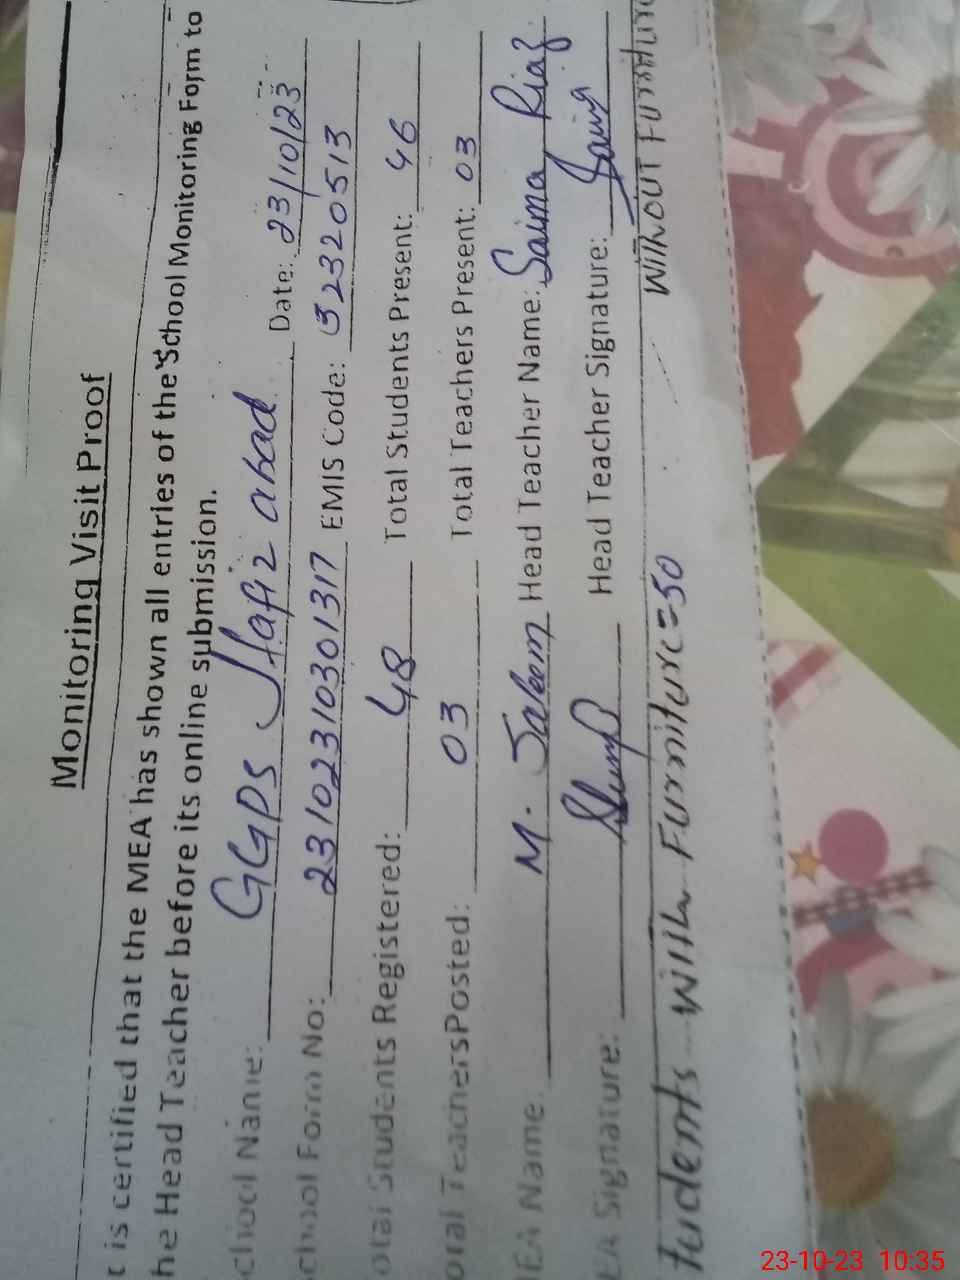 Monitoring Visit Proof
t is certified that the MEA has shown all entries of the School Monitoring Form to
he Head Teacher before its online submission.
chool Name: GGPS Hafiz abad Date: 23/10/23
chool Form No: 23102310301317 EMIS Code: 32320513
otal Students Registered: 48 Total Students Present: 46
otal TeachersPosted: 03 Total Teachers Present: 03
EA Name: M. Saleem Head Teacher Name: Saima Riaz
EA Signature: Head Teacher Signature: Saima
tudents With Furniture=50 Without Furniture
23-10-23 10:35